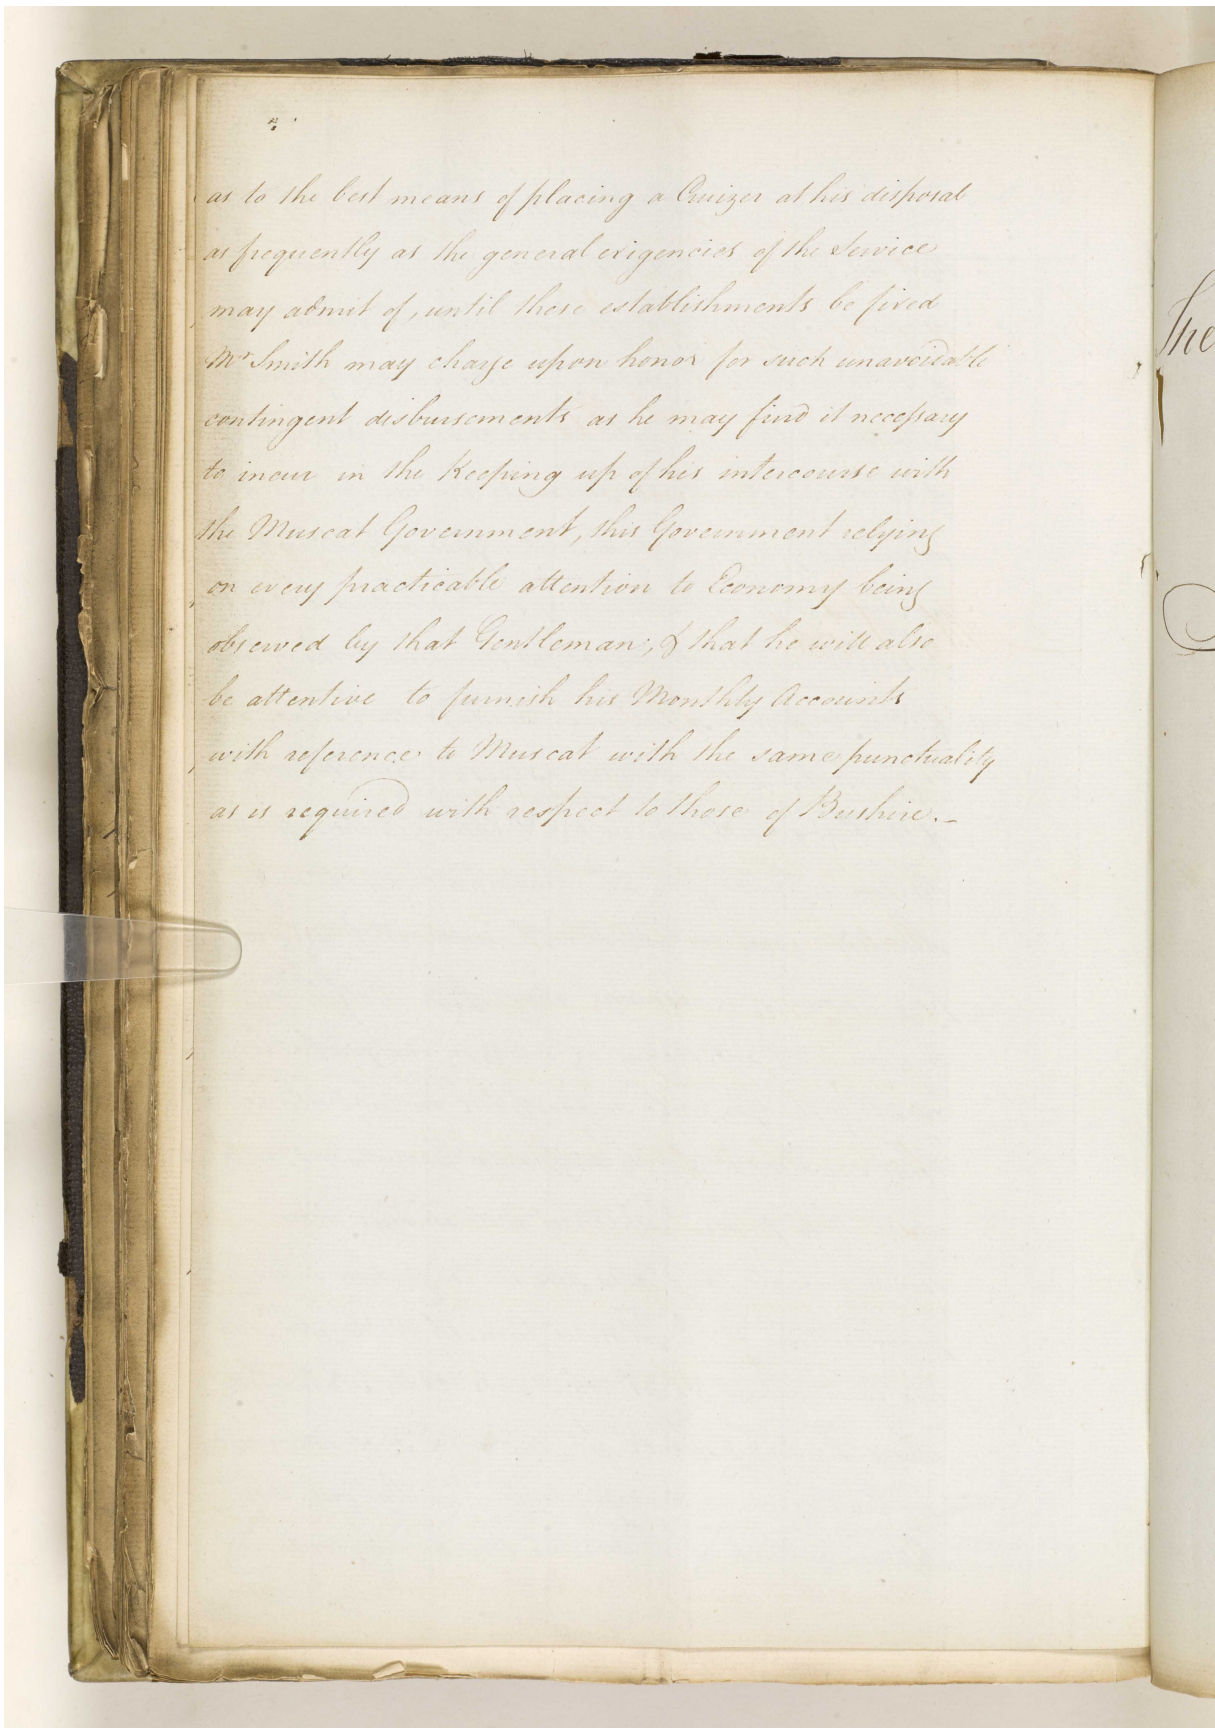 as to the best means of placing a Cruizer at his disposal
as frequently as the general exigencies of the Service
may admit of, until these establishments be fixed
Mr Smith may charge upon honor for such unavoidable
contingent disbursements as he may find it necessary
to incur in the Keeping up of his intercourse with
the Muscat Government, this Government relying
on every practicable attention to Economy being
observed by that Gentleman, & that he will also
be attentive to furnish his Monthly Accounts
with reference to Muscat with the same punctuality
as is required with respect to those of Bushire._
The